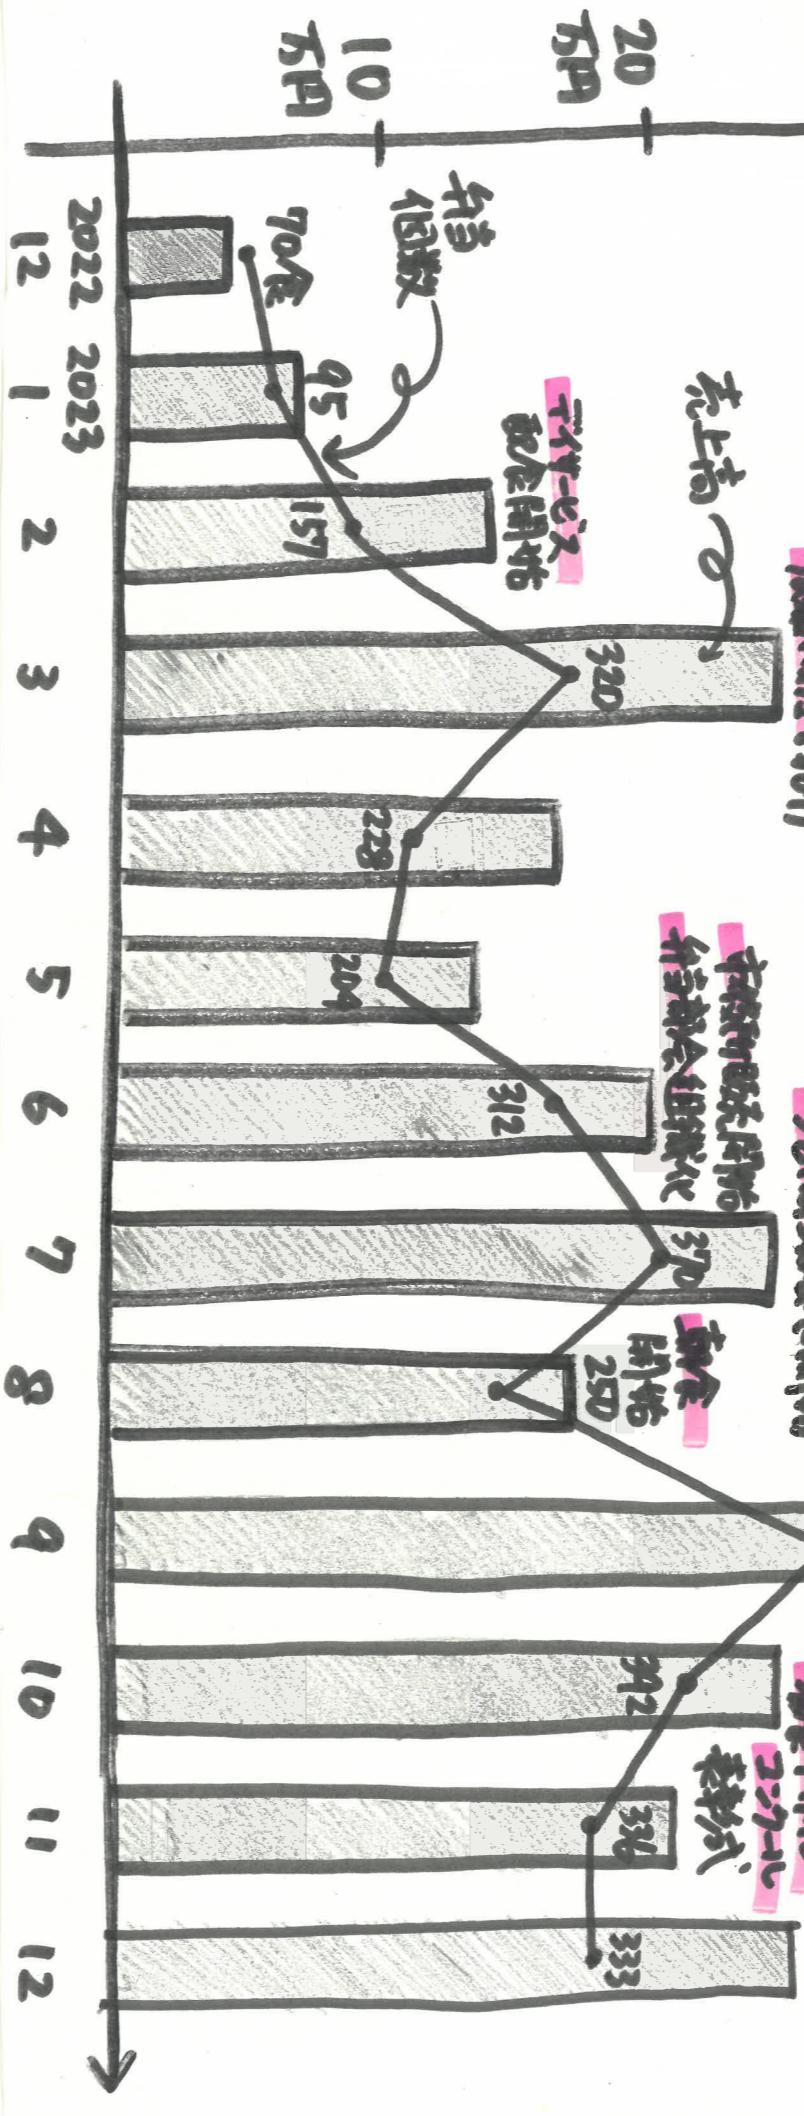 20
万円
10
万円
弁当
個数
売上高
70食
95
157
320
228
204
312
370
250
392
336
333
デイサービス
配食開始
弁当部会組織化
朝食
開始
コンクール
表彰式
2022
12
2023
1
2
3
4
5
6
7
8
9
10
11
12